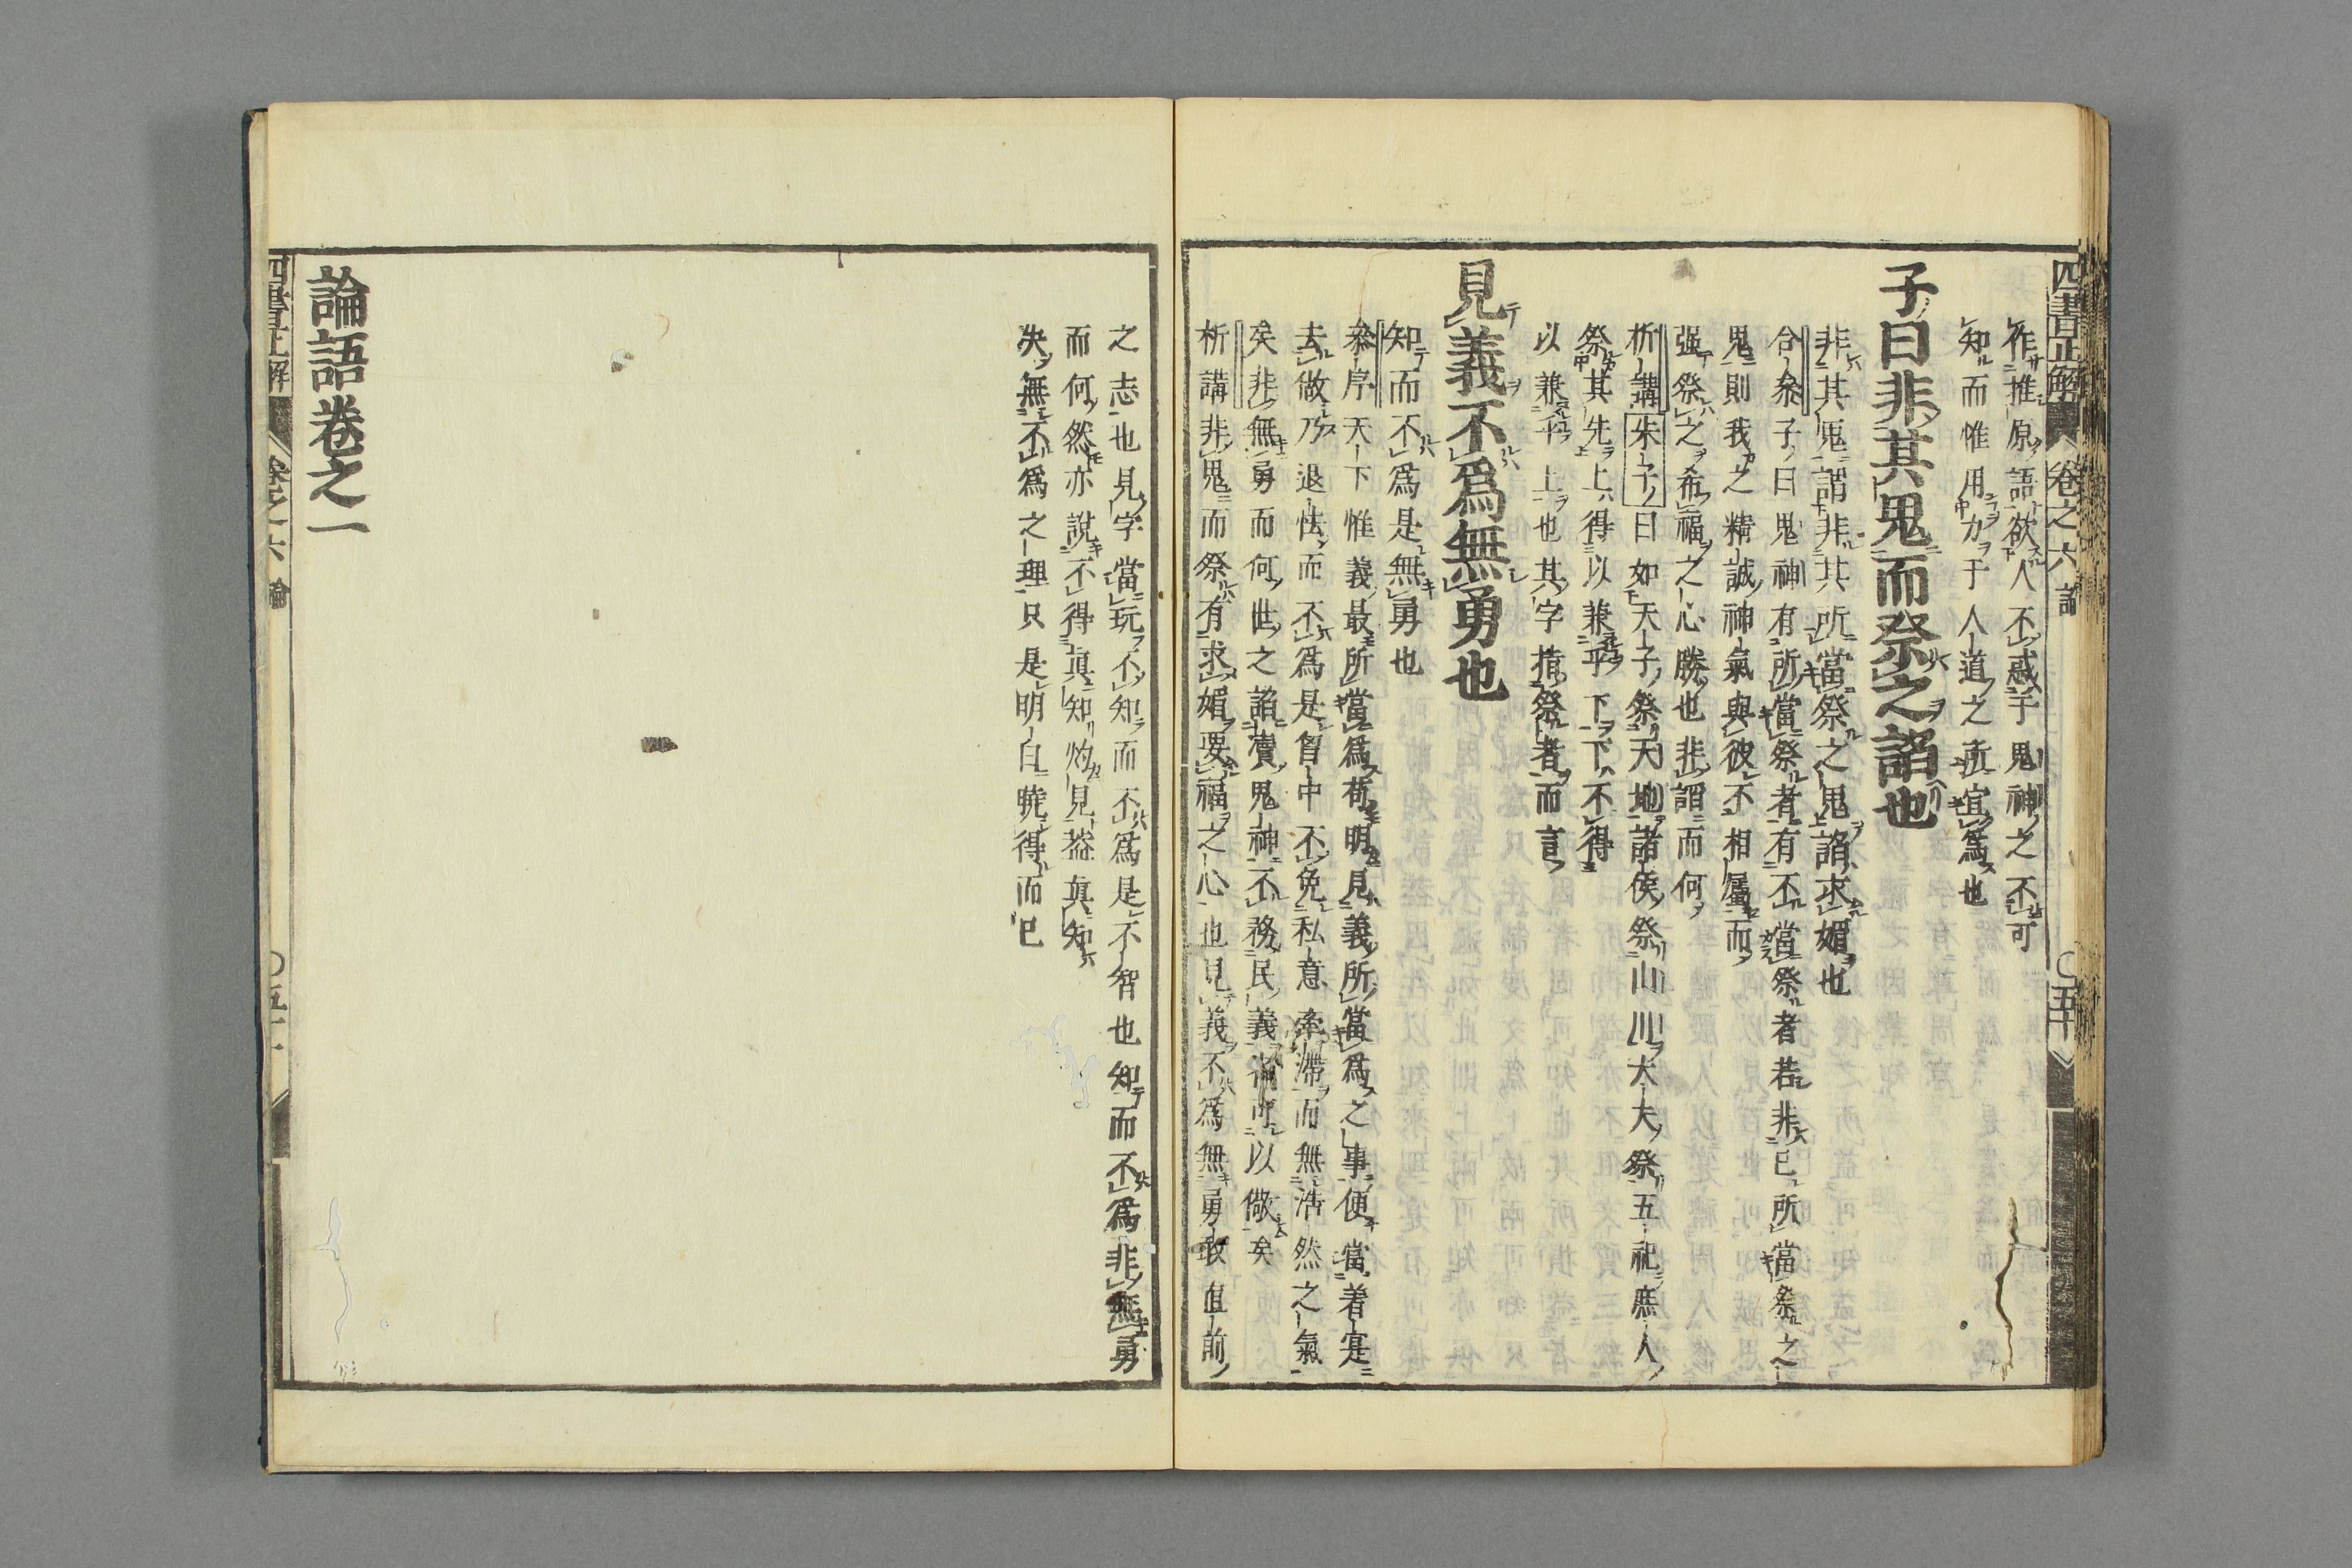 四書正解 卷之六 論 ○五十
作推原語欲人不惑于鬼神之不可
知而惟用力于人道之所宜爲也
子曰非其鬼而祭之諂也
非其鬼謂非其所當祭之鬼諂求媚也
合參子曰鬼神有所當祭者有不當祭者若非己所當祭之
鬼則我之精誠神氣與彼不相屬而
强祭之希福之心勝也非謂而何
析講朱子曰如天子祭天地諸侯祭山川大夫祭五祀庶人
祭其先上得以兼乎下下不得
以兼乎上也其字指祭者而言
見義不爲無勇也
知而不爲是無勇也
參序天下惟義最所當爲苟明見義所當爲之事便當着寔
去做乃退怯而不爲是胷中不免私意牽滯而無浩然之氣
矣非無勇而何世之諂瀆鬼神不務民義者可以儆矣
析講非鬼而祭有求媚要福之心也見義不爲無勇敢直前
之志也見字當玩不知而不爲是不智也知而不爲非無勇
而何然亦說不得眞知灼見葢眞知
决無不爲之理只是明白曉得而已
論語卷之一
四書正解 卷之六 論 ○五十一